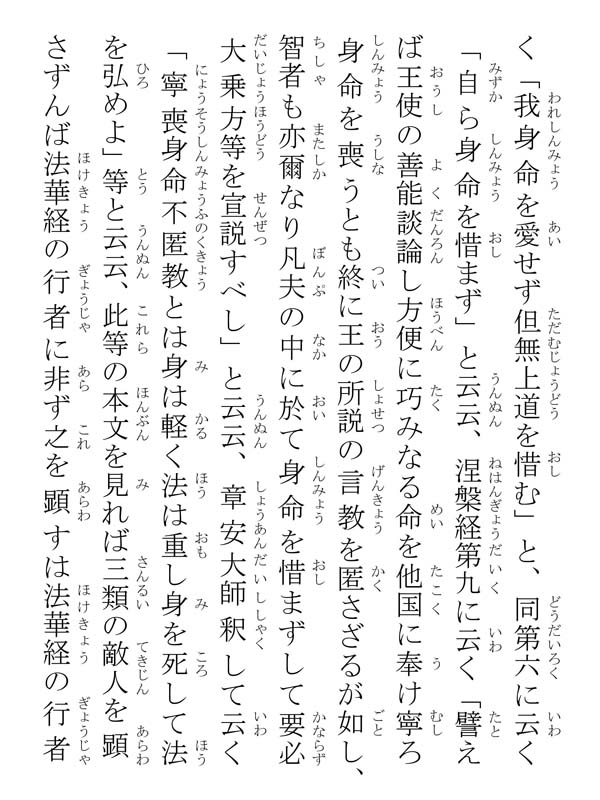 く「我身命を愛せず但無上道を惜む」と、同第六に云く
「自ら身命を惜まず」と云云、涅槃経第九に云く「譬え
ば王使の善能談論し方便に巧みなる命を他国に奉け寧ろ
身命を喪うとも終に王の所説の言教を匿さざるが如し、
智者も亦爾なり凡夫の中に於て身命を惜まずして要必
大乗方等を宣説すべし」と云云、章安大師釈して云く
「寧喪身命不匿教とは身は軽く法は重し身を死して法
を弘めよ」等と云云、此等の本文を見れば三類の敵人を顕
さずんば法華経の行者に非ず之を顕すは法華経の行者